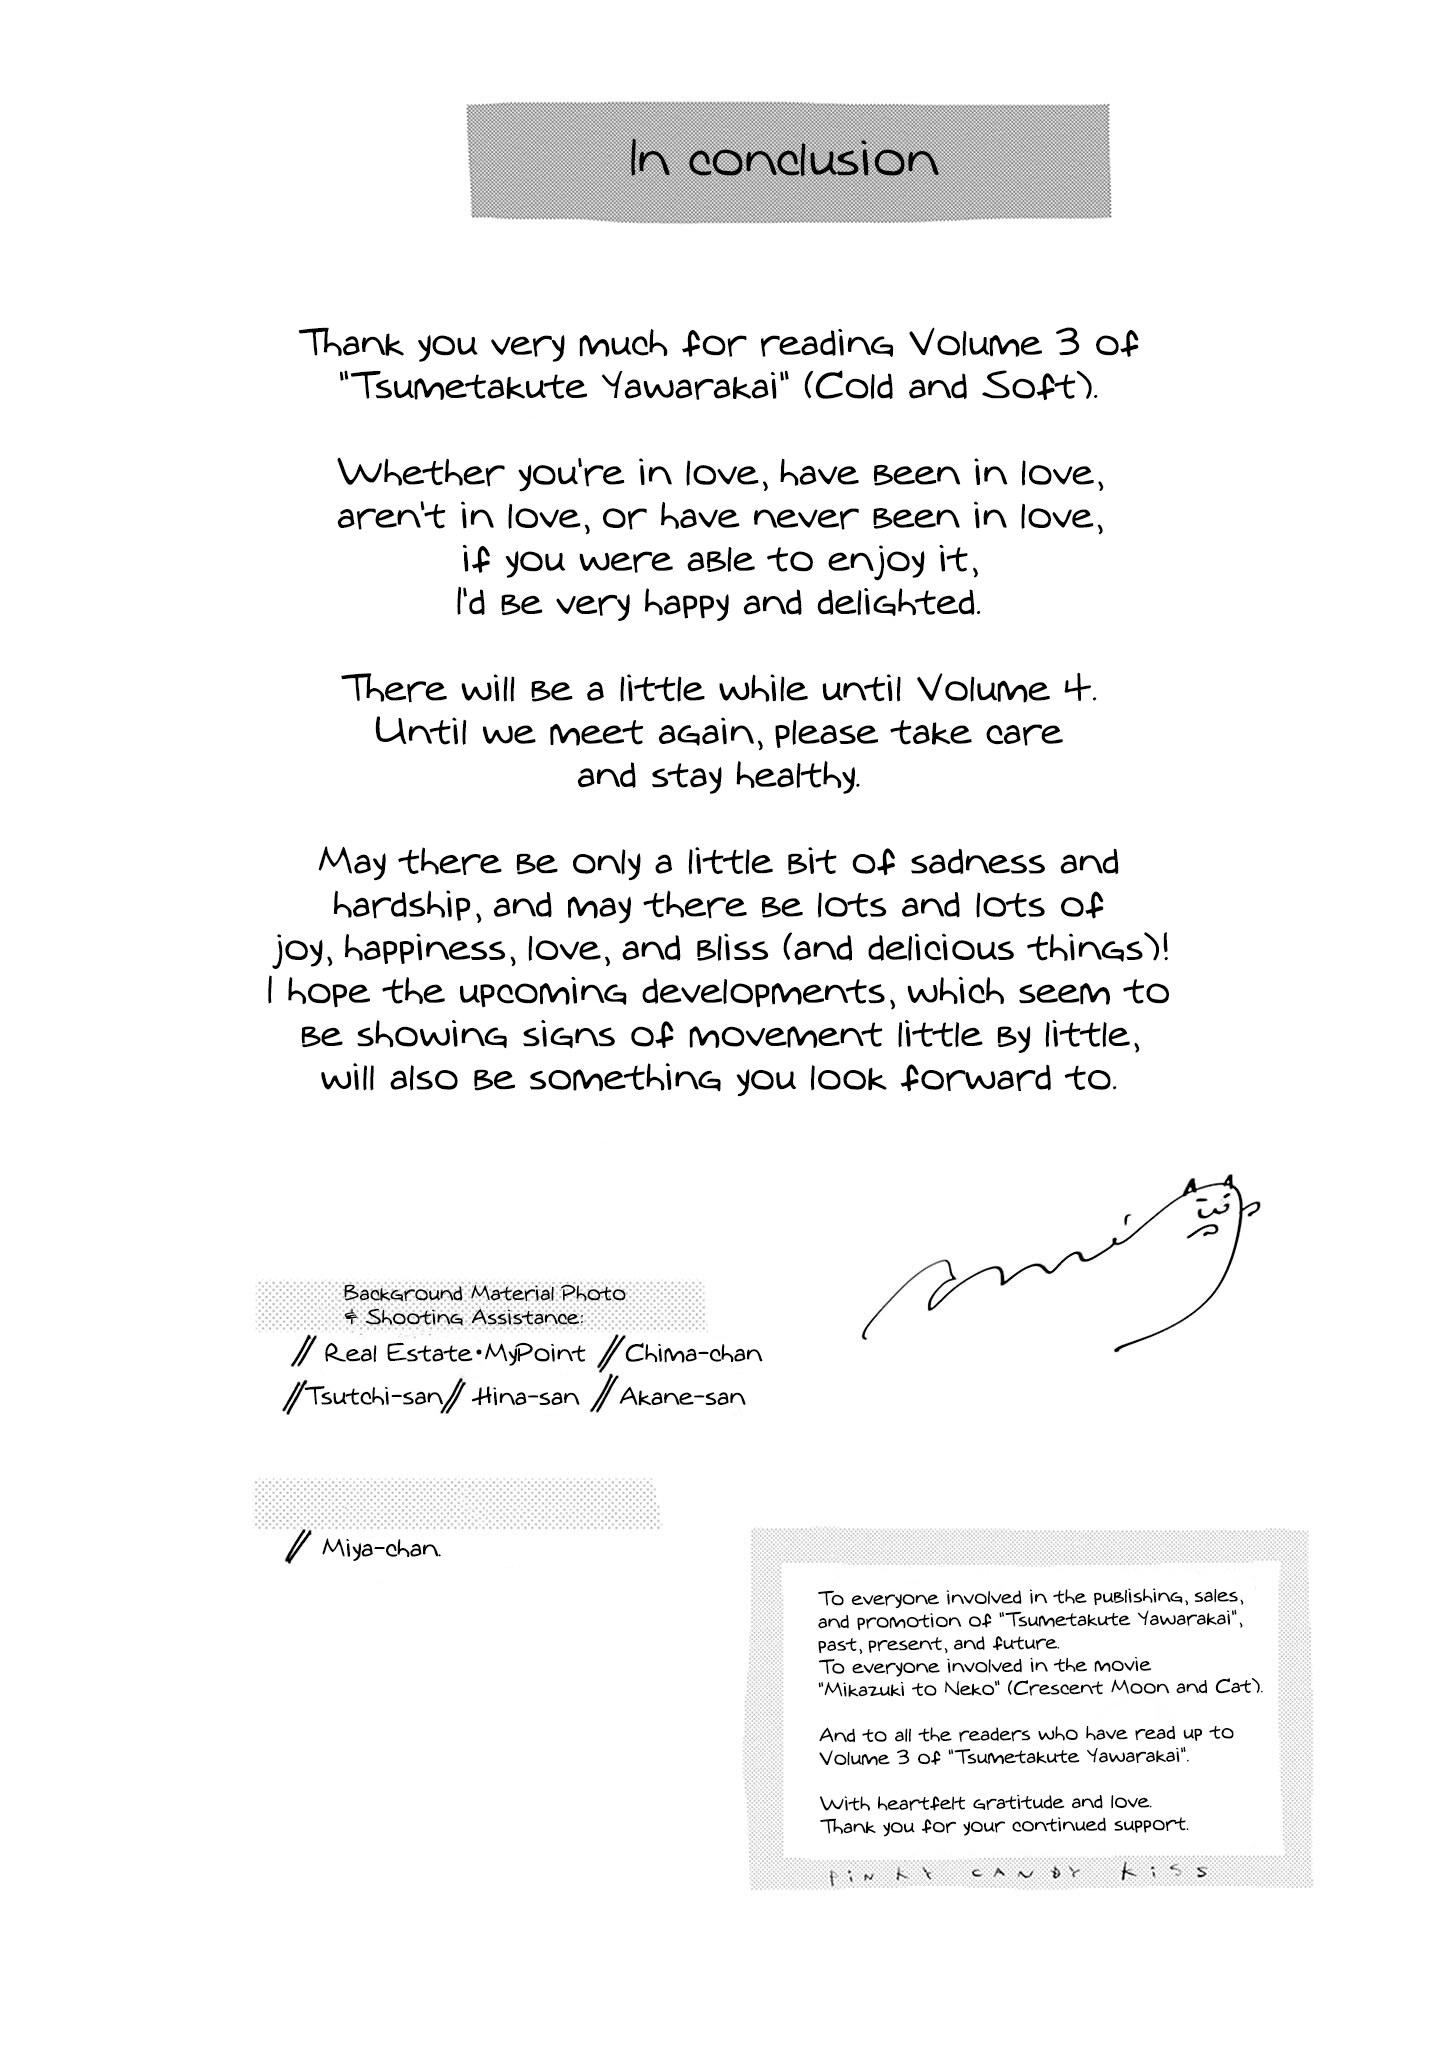 In conclusion
Thank you very much for reading Volume 3 of
"Tsumetakute Yawarakai" (Cold and Soft).
Whether you're in love, have been in love,
aren't in love, or have never been in love,
if you were able to enjoy it,
I'd be very happy and delighted.
There will be a little while until Volume 4.
Until we meet again, please take care
and stay healthy.
May there be only a little bit of sadness and
hardship, and may there be lots and lots of
joy, happiness, love, and bliss (and delicious things)!
I hope the upcoming developments, which seem to
be showing signs of movement little by little,
will also be something you look forward to.
Background Material Photo
& Shooting Assistance:
// Real Estate・MyPoint // Chima-chan
// Tsutchi-san // Hina-san // Akane-san
// Miya-chan.
To everyone involved in the publishing, sales,
and promotion of "Tsumetakute Yawarakai",
past, present, and future.
To everyone involved in the movie
"Mikazuki to Neko" (Crescent Moon and Cat).
And to all the readers who have read up to
Volume 3 of "Tsumetakute Yawarakai".
With heartfelt gratitude and love.
Thank you for your continued support.
PiNKY CANDY KiSS